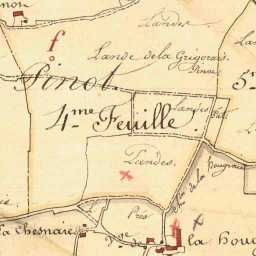 non
Landes
f
Lande de la Grigorais
Pinot.
5
4.me Feuille
Landes
Landes.
Près
la Chesnaie
la houg